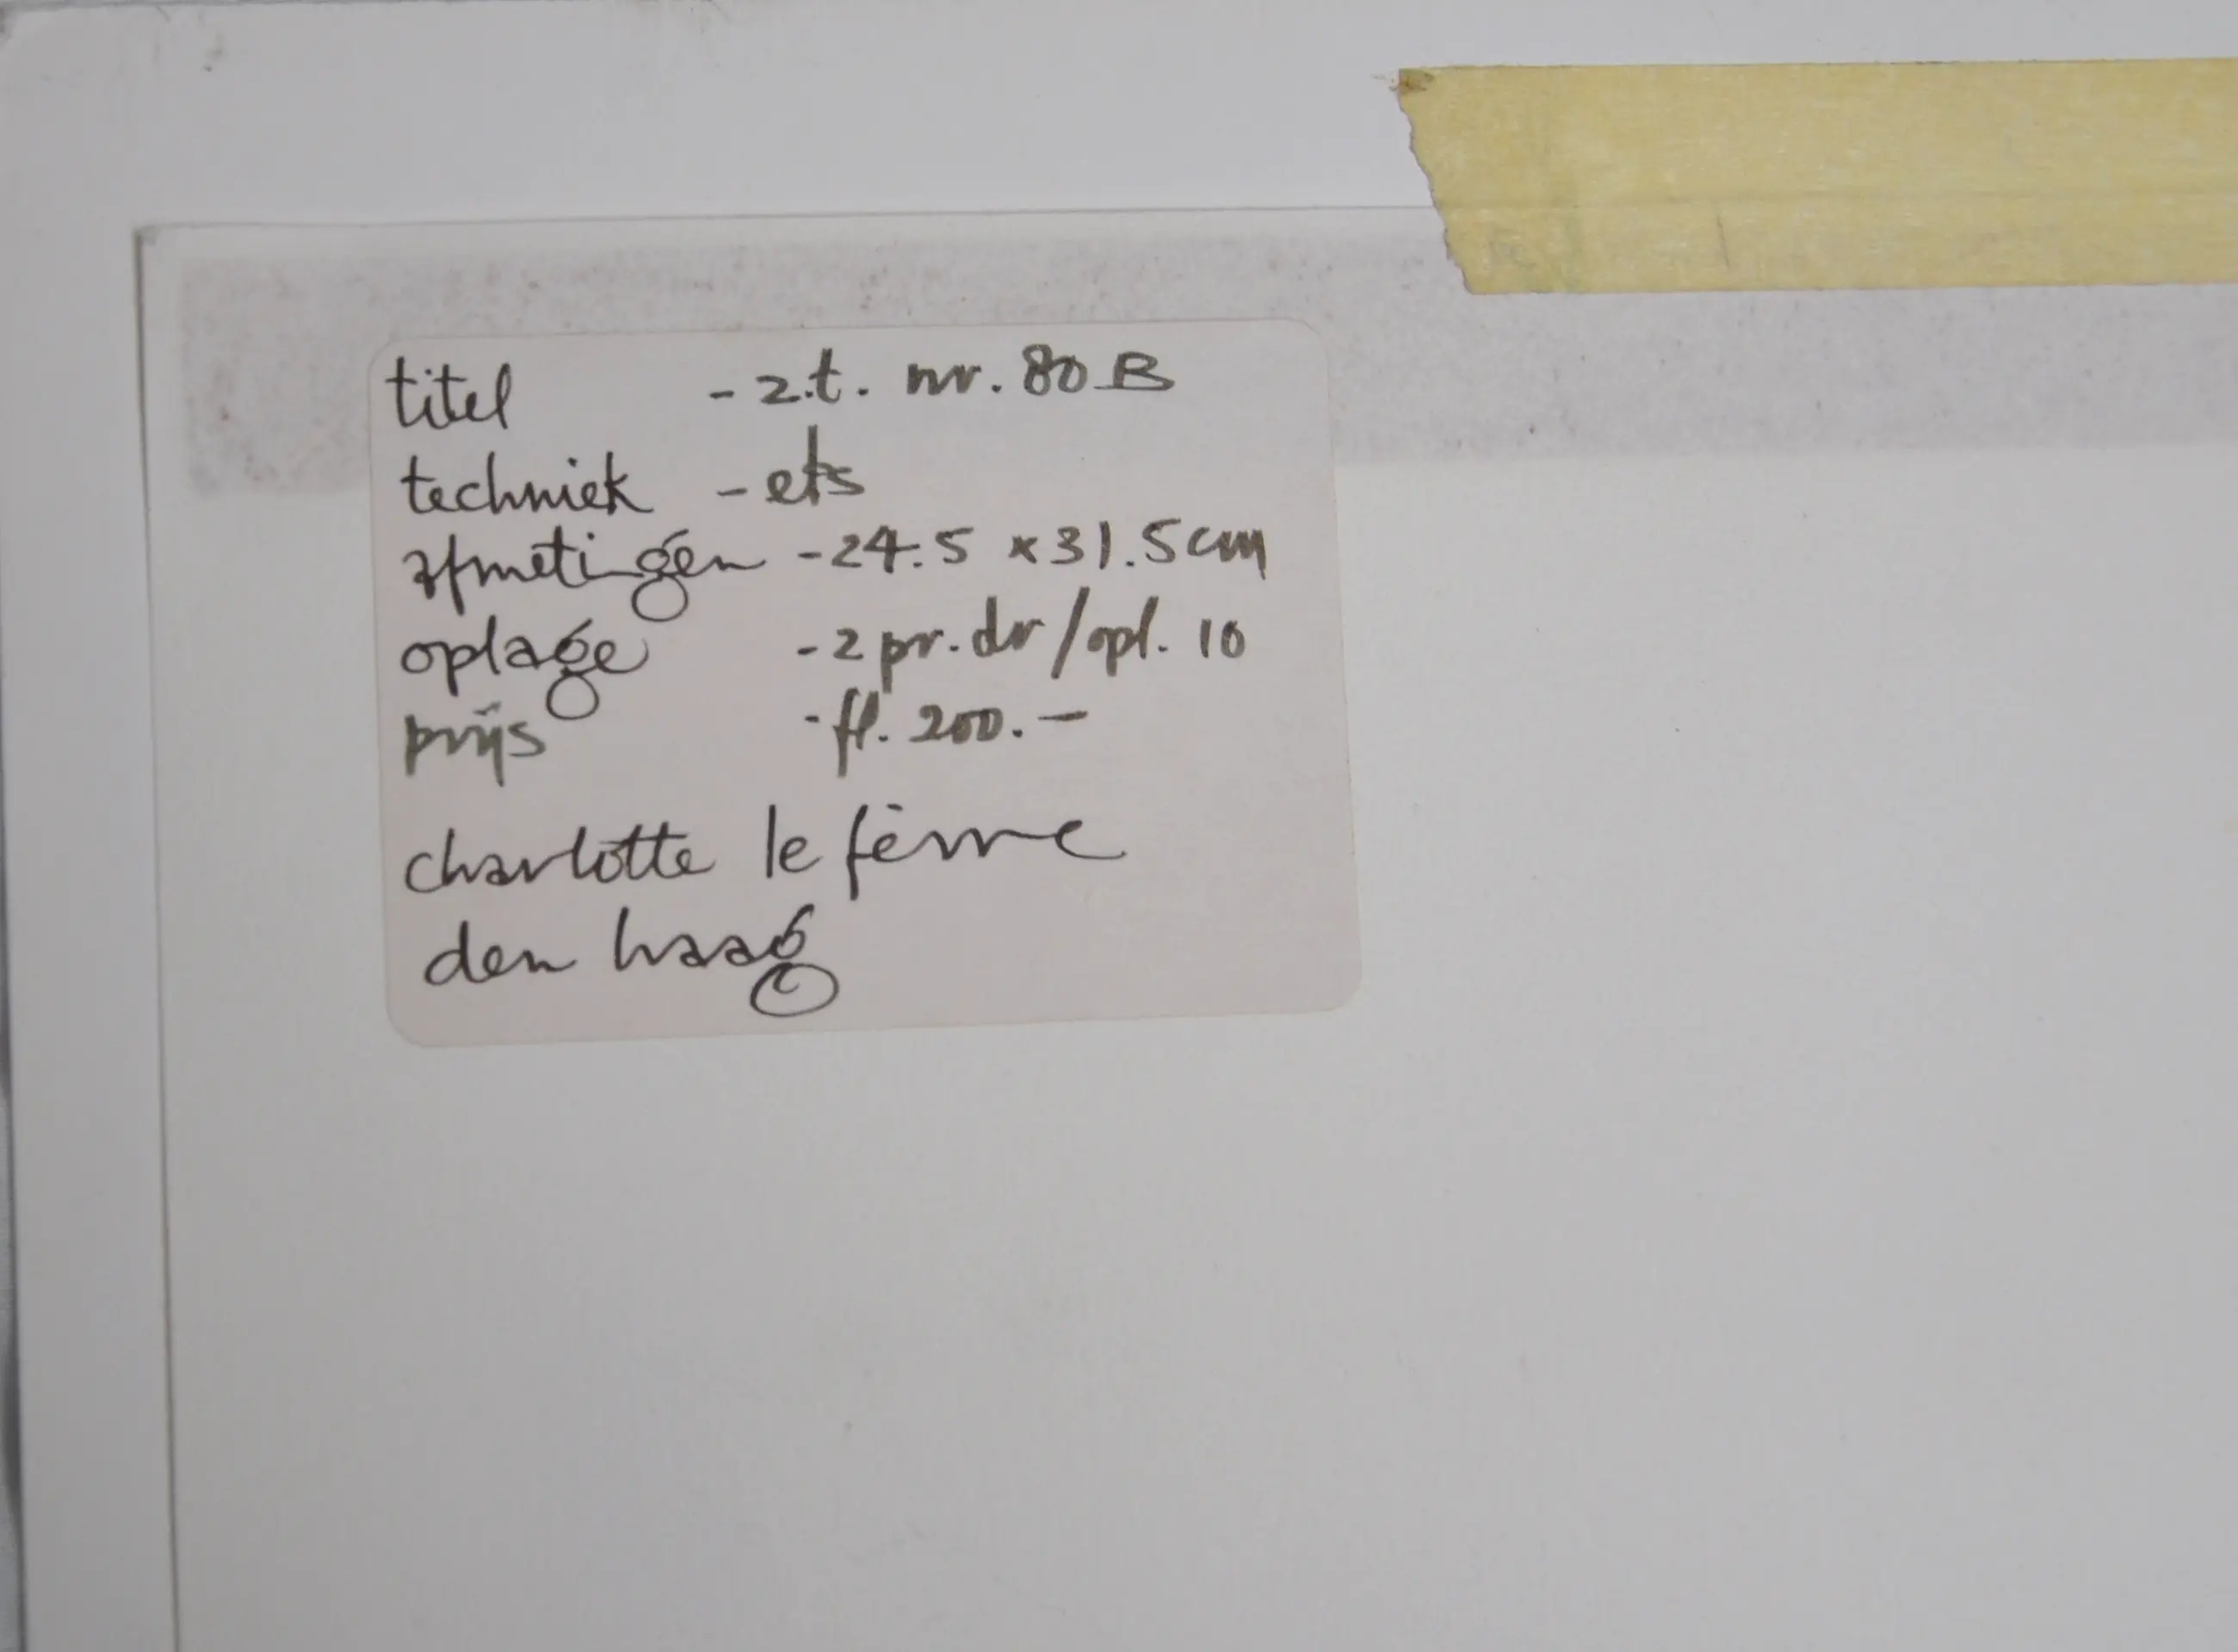 titel - z.t. nr. 80 B
techniek - ets
afmetingen - 24.5 x 31.5 cm
oplage - 2 pr. dr / opl. 10
prijs - fl. 200. -
charlotte le fèvre
den haag